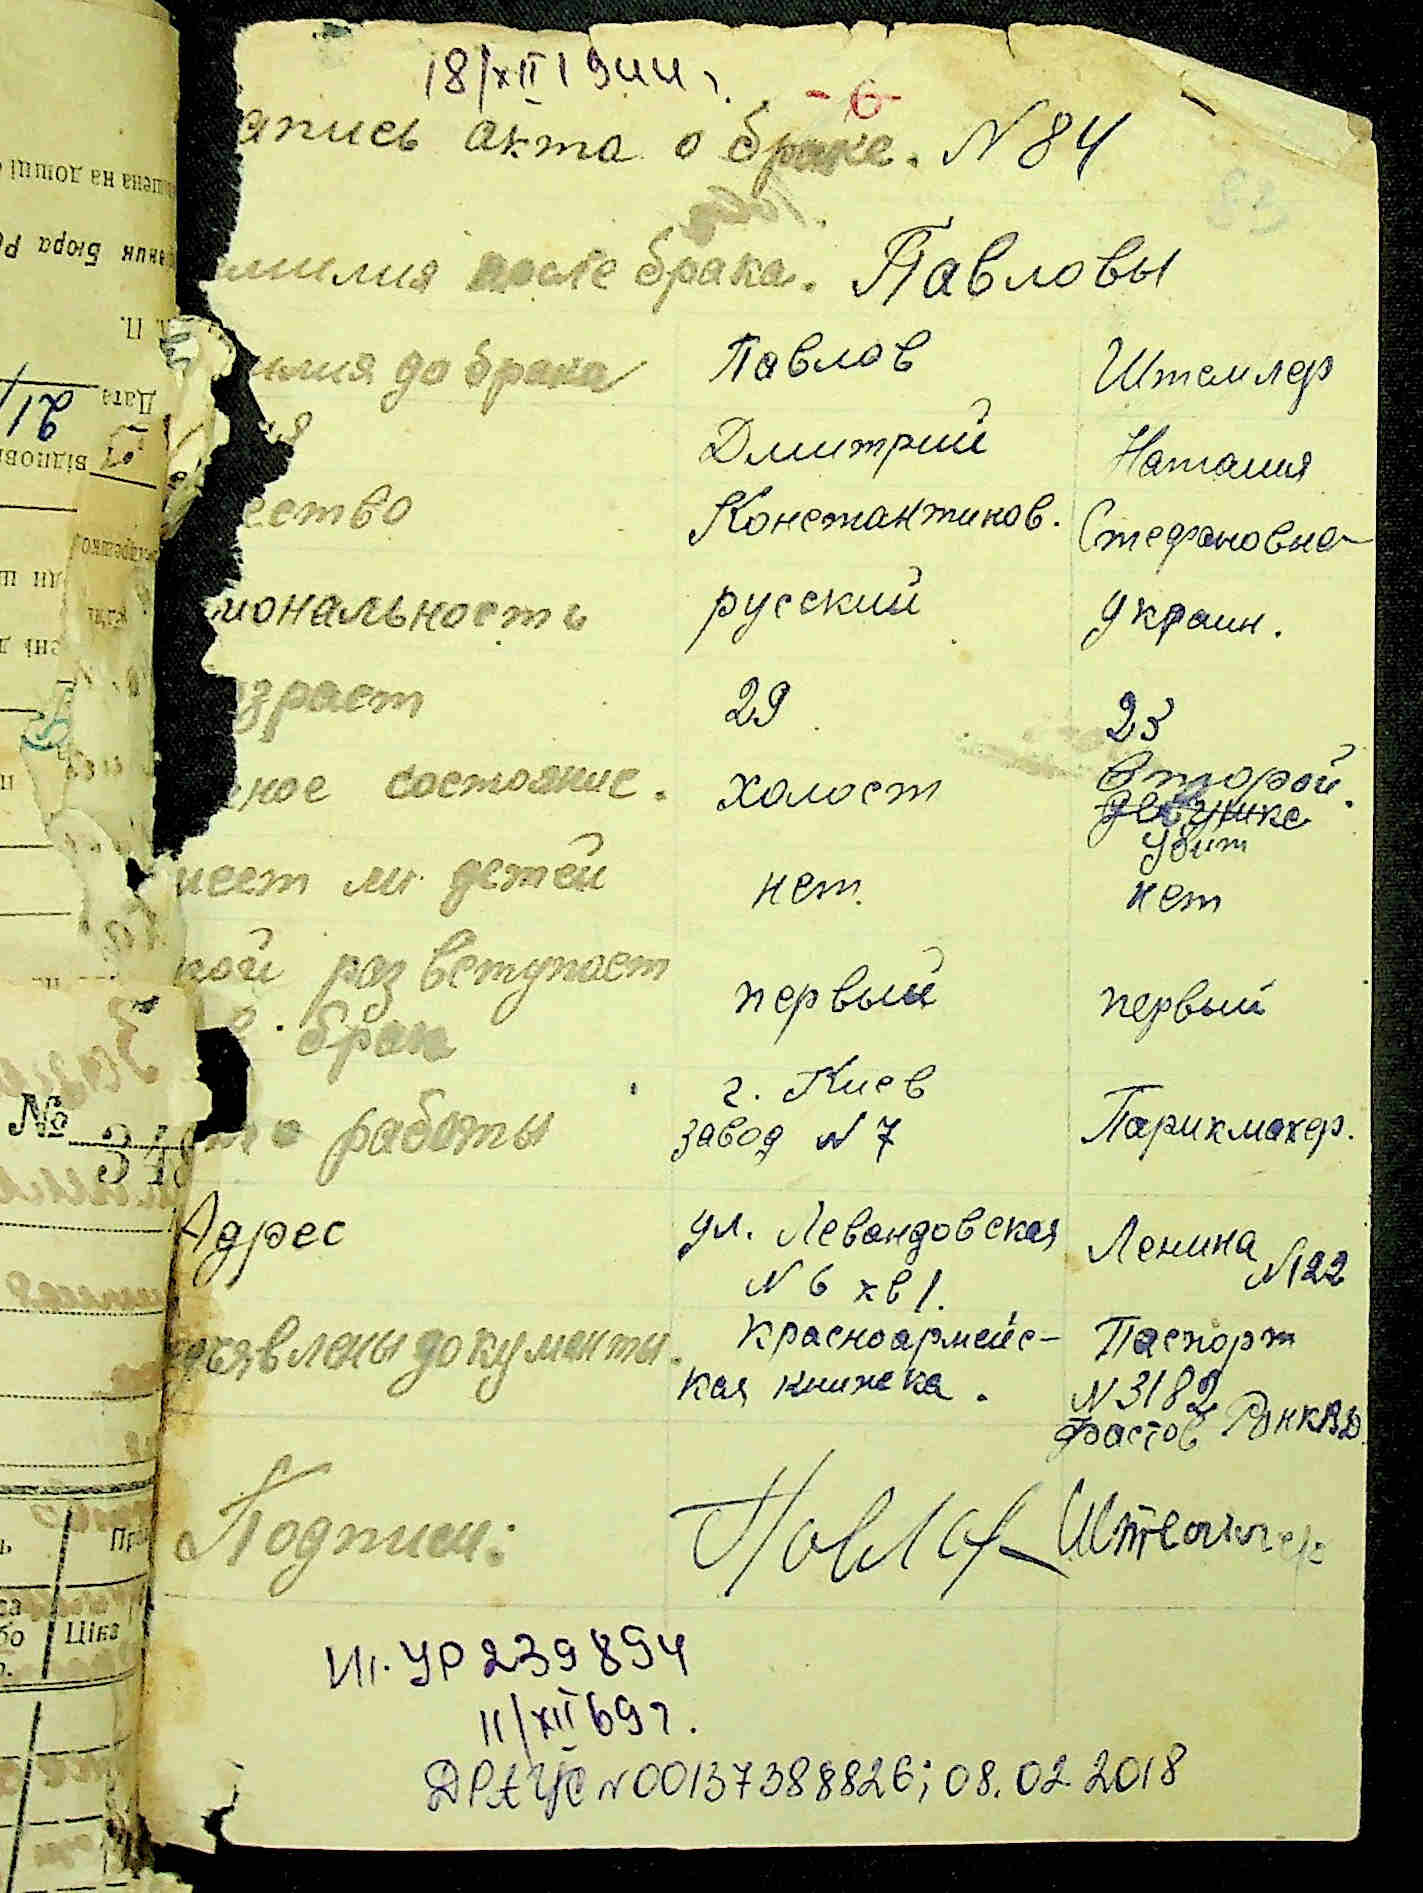 18/XII 1944 г.
- 6 -
апись акта о браке. N 84
83
милия после брака. Павловы
милия до брака Павлов Штемлер
мя Дмитрий Наталия
ество Константинов. Стефановна
иональность русский украин.
озраст 29 23
ное состояние. холост второй.
девушка
убит
меет ли детей нет. нет
кой раз вступает первый первый
в брак
г. Киев
то работы завод N 7 Парикмахер.
Адрес ул. Левандовская Ленина
N 6 кв 1. N 122
едъявлены документы. Красноармейс- Паспорт
кая книжка. N 3182
Фастов РОНКВД.
Подписи: Павлов Штемлер
УР 239894
11/XII 69 г.
ДРАЦС N 00137388826; 08.02 2018
П.
Дата
21/
№ 348
Ціна